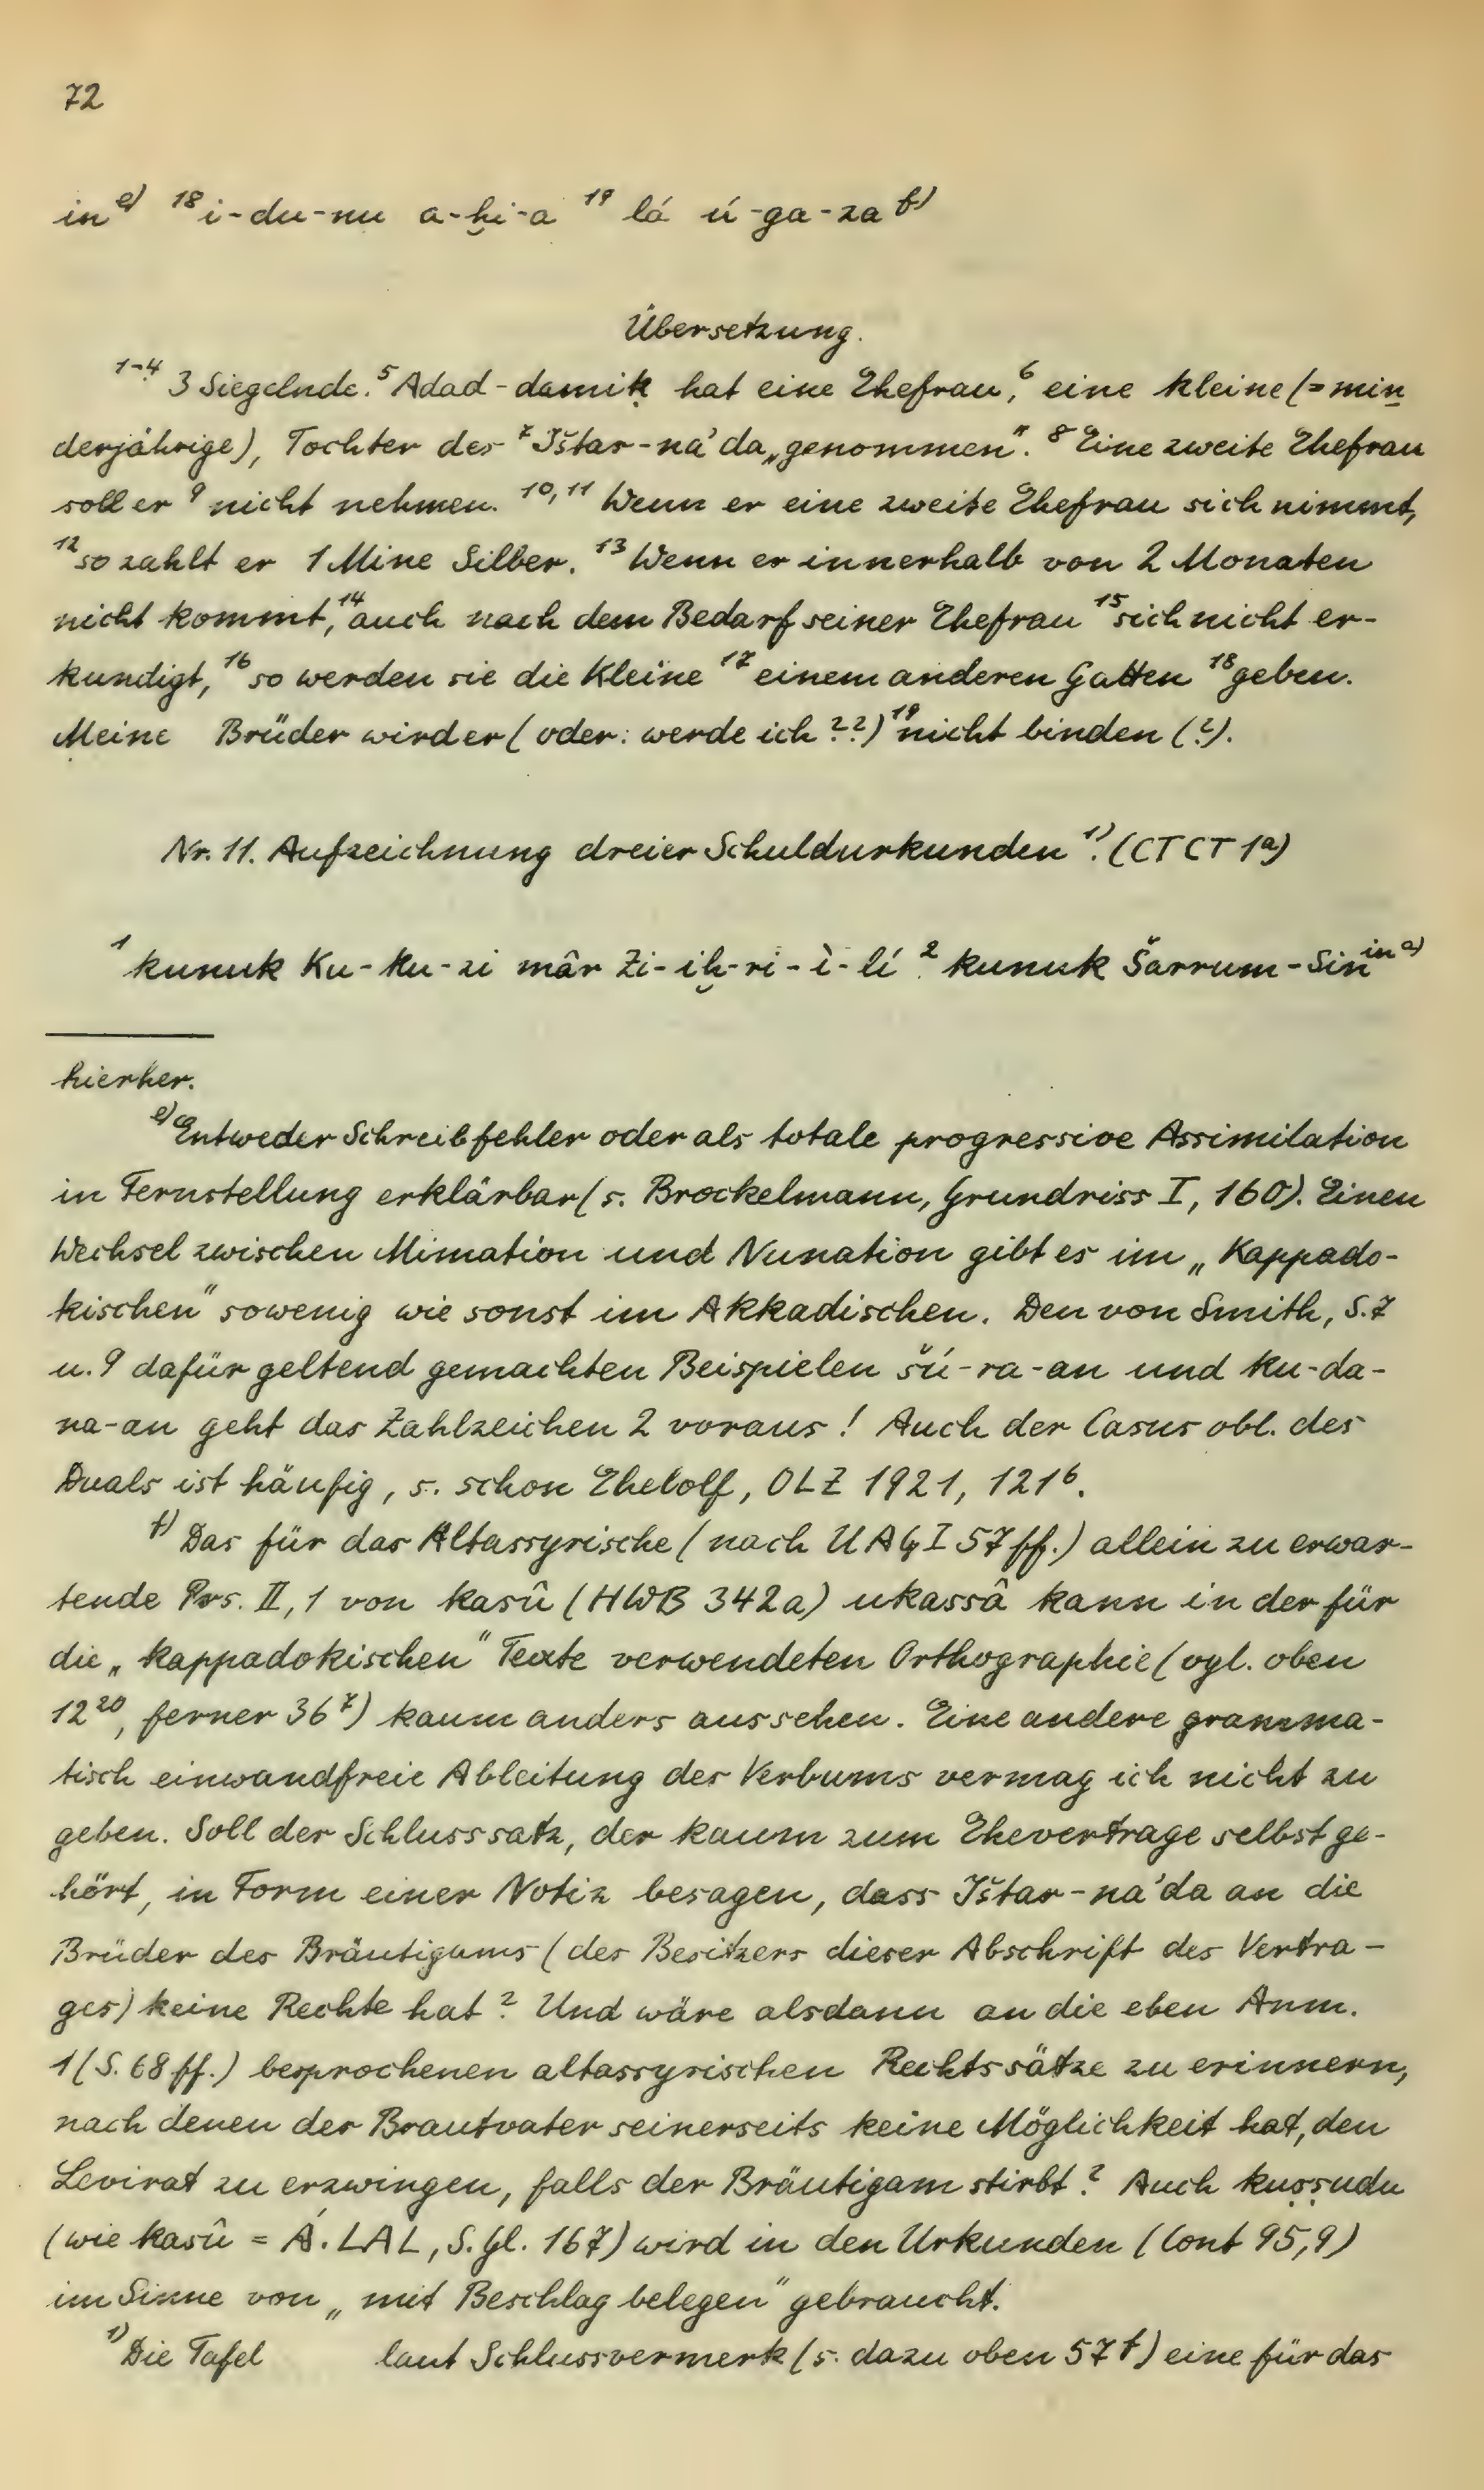 72
in ᵉ⁾ ¹⁸ i-du-nu a-ḫi-a ¹⁹ lá ú-ga-za ᶠ⁾
Übersetzung.
¹⁻⁴ 3 Siegelnde. ⁵ Adad-damiḳ hat eine Ehefrau, ⁶ eine kleine (= min
derjährige), Tochter des ⁷ Ištar-na'da „genommen". ⁸ Eine zweite Ehefrau
soll er ⁹ nicht nehmen. ¹⁰,¹¹ Wenn er eine zweite Ehefrau sich nimmt,
¹² so zahlt er 1 Mine Silber. ¹³ Wenn er innerhalb von 2 Monaten
nicht kommt, ¹⁴ auch nach dem Bedarf seiner Ehefrau ¹⁵ sich nicht er-
kundigt, ¹⁶ so werden sie die Kleine ¹⁷ einem anderen Gatten ¹⁸ geben.
Meine Brüder wird er (oder: werde ich ??) ¹⁹ nicht binden (?).
Nr. 11. Aufzeichnung dreier Schuldurkunden ¹⁾. (CTCT 1ᵃ)
¹ kunuk Ku-ku-zi mâr Zi-iḫ-ri-ì-lí ² kunuk Šarrum-Sin ⁱⁿ ᵃ⁾
hierher.
ᵉ⁾ Entweder Schreibfehler oder als totale progressive Assimilation
in Fernstellung erklärbar (s. Brockelmann, Grundriss I, 160). Einen
Wechsel zwischen Mimation und Nunation gibt es im „Kappado-
kischen" sowenig wie sonst im Akkadischen. Den von Smith, S. 7
u. 9 dafür geltend gemachten Beispielen šú-ra-an und ku-da-
na-an geht das Zahlzeichen 2 voraus! Auch der Casus obl. des
Duals ist häufig, s. schon Ehelolf, OLZ 1921, 121⁶.
ᶠ⁾ Das für das Altassyrische (nach UAG I 57 ff.) allein zu erwar-
tende Prs. II, 1 von kasû (HWB 342a) ukassâ kann in der für
die „kappadokischen" Texte verwendeten Orthographie (vgl. oben
12²⁰, ferner 36⁷) kaum anders aussehen. Eine andere gramma-
tisch einwandfreie Ableitung des Verbums vermag ich nicht zu
geben. Soll der Schlusssatz, der kaum zum Ehevertrage selbst ge-
hört, in Form einer Notiz besagen, dass Ištar-na'da an die
Brüder des Bräutigams (des Besitzers dieser Abschrift des Vertra-
ges) keine Rechte hat? Und wäre alsdann an die eben Anm.
1 (S. 68 ff.) besprochenen altassyrischen Rechtssätze zu erinnern,
nach denen der Brautvater seinerseits keine Möglichkeit hat, den
Levirat zu erzwingen, falls der Bräutigam stirbt? Auch kuṣṣudu
(wie kasû = Á.LAL, S. Gl. 167) wird in den Urkunden (Cont 95,9)
im Sinne von „mit Beschlag belegen" gebraucht.
¹⁾ Die Tafel laut Schlussvermerk (s. dazu oben 57 f) eine für das